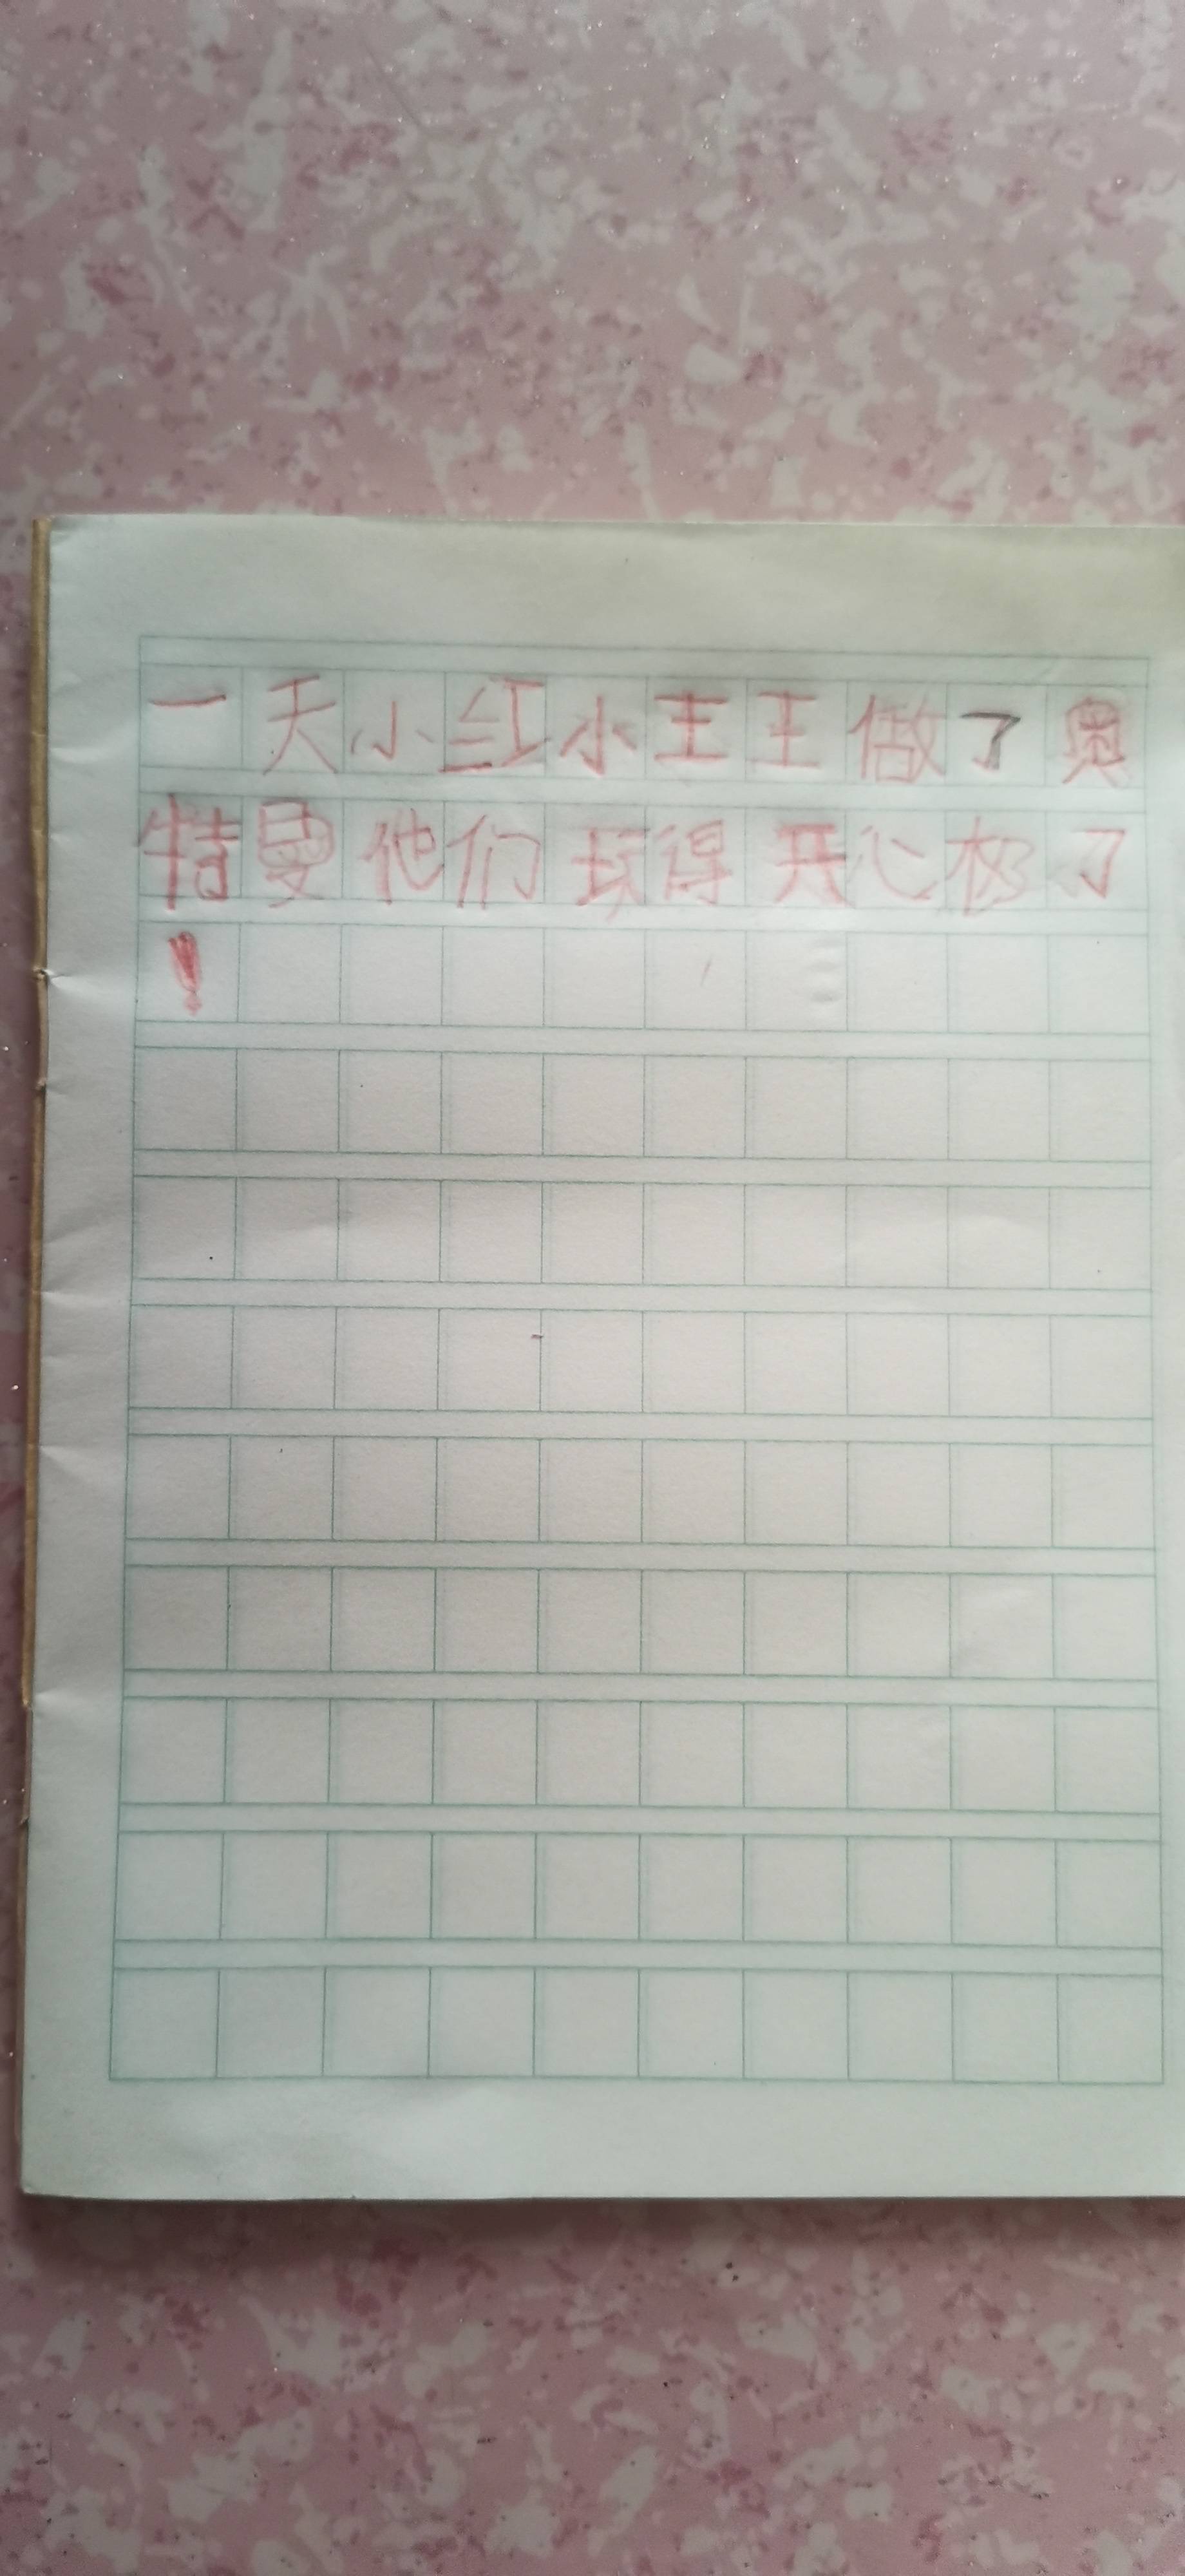 一天小红小王王做了奥
特曼他们玩得开心极了
！